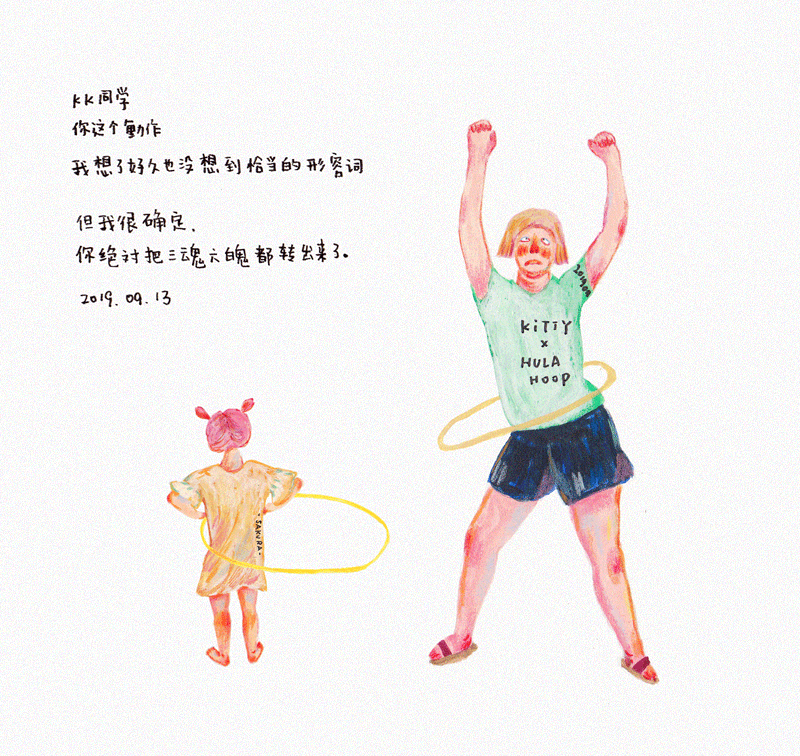 KK同学
你这个動作
我想了好久也没想到恰当的形容词
但我很确定.
你绝对把三魂六魄都转出来了。
2019.09.13
201909
KiTTY
x
HULA
HOOP
·SAKURA·